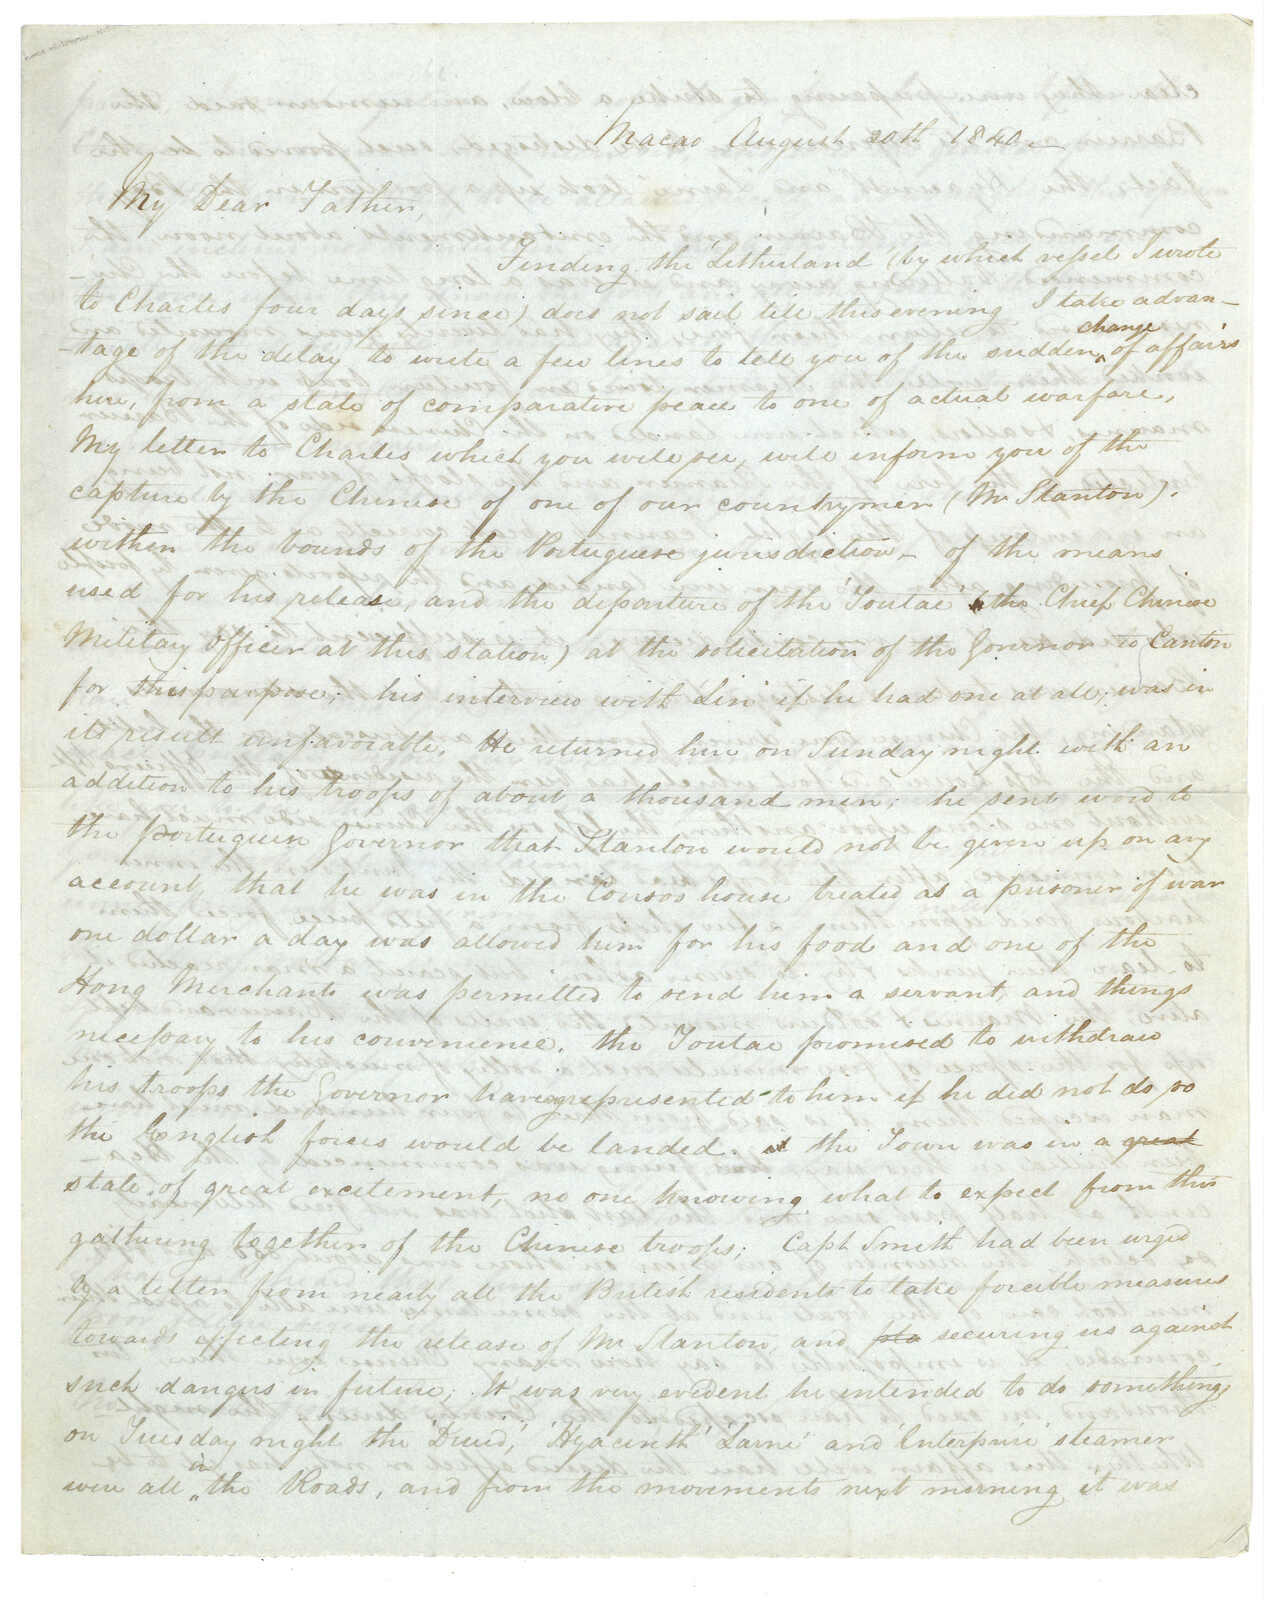 Macao August 20th 1840.
My Dear Father,
Finding the 'Litherland' (by which vessel I wrote
to Charles four days since) does not sail till this evening I take advan-
-tage of the delay to write a few lines to tell you of the sudden change of affairs
here, from a state of comparative peace to one of actual warfare,
My letter to Charles which you will see, will inform you of the
capture by the Chinese of one of our countrymen (Mr Stanton).
within the bounds of the Portuguese jurisdiction - of the means
used for his release, and the departure of the 'Toutae' (the Chief Chinese
Military Officer at this station) at the solicitation of the Governor to Canton
for this purpose; his interview with 'Lin' if he had one at all, was in
its result unfavorable. He returned here on Sunday night with an
addition to his troops of about a thousand men; he sent word to
the portuguese Governor that Stanton would not be given up on any
account, that he was in the Consoo house treated as a prisoner of war
one dollar a day was allowed him for his food and one of the
Hong Merchants was permitted to send him a servant, and things
necessary to his convenience. the Toutae promised to withdraw
his troops the Governor having represented to him if he did not do so
the English forces would be landed. the Town was in a great
state of great excitement, no one knowing what to expect from this
gathering together of the Chinese troops; Capt Smith had been urged
by a letter from nearly all the British residents to take forcible measures
towards effecting the release of Mr Stanton, and securing us against
such dangers in future; It was very evident he intended to do something,
on Tuesday night the 'Druid', 'Hyacinth' 'Larne' and 'Enterprise' steamer
were all in the Roads, and from the movements next morning it was